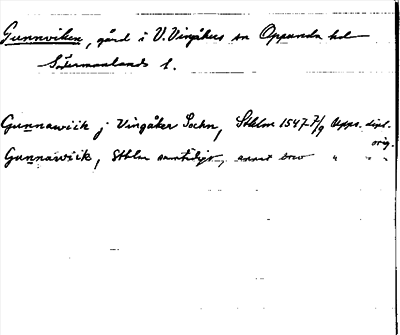 Gunnviken, gård i V. Vingåkers sn Oppunda hd
Södermanlands l.
Gunnawiik j Vingåker Sochn, Sthlm 1547 7/9 Upps. dipl.
orig.
Gunnawiik, Sthlm samtidigt, annat brev " " "